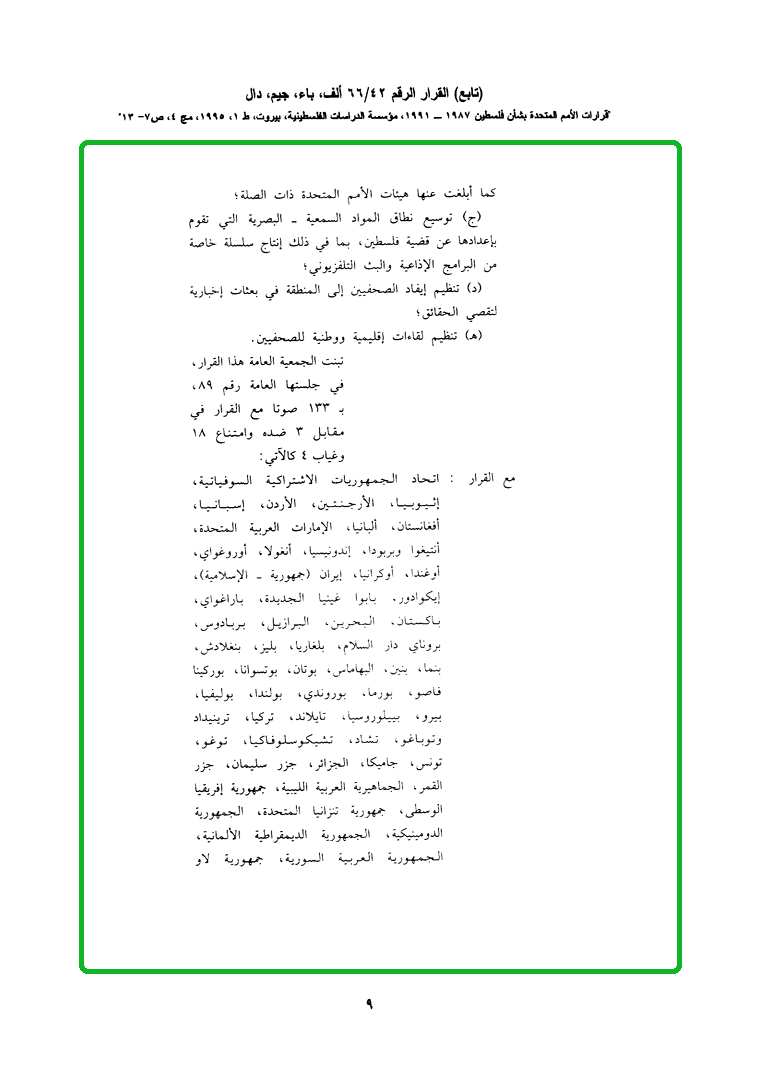 (تابع) القرار الرقم ٦٦/٤٢ ألف، باء، جيم، دال
"قرارات الأمم المتحدة بشأن فلسطين ١٩٨٧ ــ ١٩٩١، مؤسسة الدراسات الفلسطينية، بيروت، ط ١، ١٩٩٥، مج ٤، ص٧- ١٣"
كما أبلغت عنها هيئات الأمم المتحدة ذات الصلة؛
(ج) توسيع نطاق المواد السمعية ـ البصرية التي تقوم
بإعدادها عن قضية فلسطين، بما في ذلك إنتاج سلسلة خاصة
من البرامج الإذاعية والبث التلفزيوني؛
(د) تنظيم إيفاد الصحفيين إلى المنطقة في بعثات إخبارية
لتقصي الحقائق؛
(هـ) تنظيم لقاءات إقليمية ووطنية للصحفيين.
تبنت الجمعية العامة هذا القرار،
في جلستها العامة رقم ٨٩،
بـ ١٣٣ صوتا مع القرار في
مقابل ٣ ضده وامتناع ١٨
وغياب ٤ كالآتي:
مع القرار : اتحاد الجمهوريات الاشتراكية السوفياتية،
إثيوبيا، الأرجنتين، الأردن، إسبانيا،
أفغانستان، ألبانيا، الإمارات العربية المتحدة،
أنتيغوا وبربودا، إندونيسيا، أنغولا، أوروغواي،
أوغندا، أوكرانيا، إيران (جمهورية ـ الإسلامية)،
إيكوادور. بابوا غينيا الجديدة، باراغواي،
باكستان، البحرين، البرازيل، بربادوس،
بروناي دار السلام، بلغاريا، بليز، بنغلادش،
بنما، بنين، البهاماس، بوتان، بوتسوانا، بوركينا
فاصو، بورما، بوروندي، بولندا، بوليفيا،
بيرو، بييلوروسيا، تايلاند، تركيا، ترينيداد
وتوباغو، تشاد، تشيكوسلوفاكيا، توغو،
تونس، جامبكا، الجزائر، جزر سليمان، جزر
القمر، الجماهيرية العربية الليبية، جمهورية إفريقيا
الوسطى، جمهورية تنزانيا المتحدة، الجمهورية
الدومينيكية، الجمهورية الديمقراطية الألمانية،
الجمهورية العربية السورية، جمهورية لاو
٩